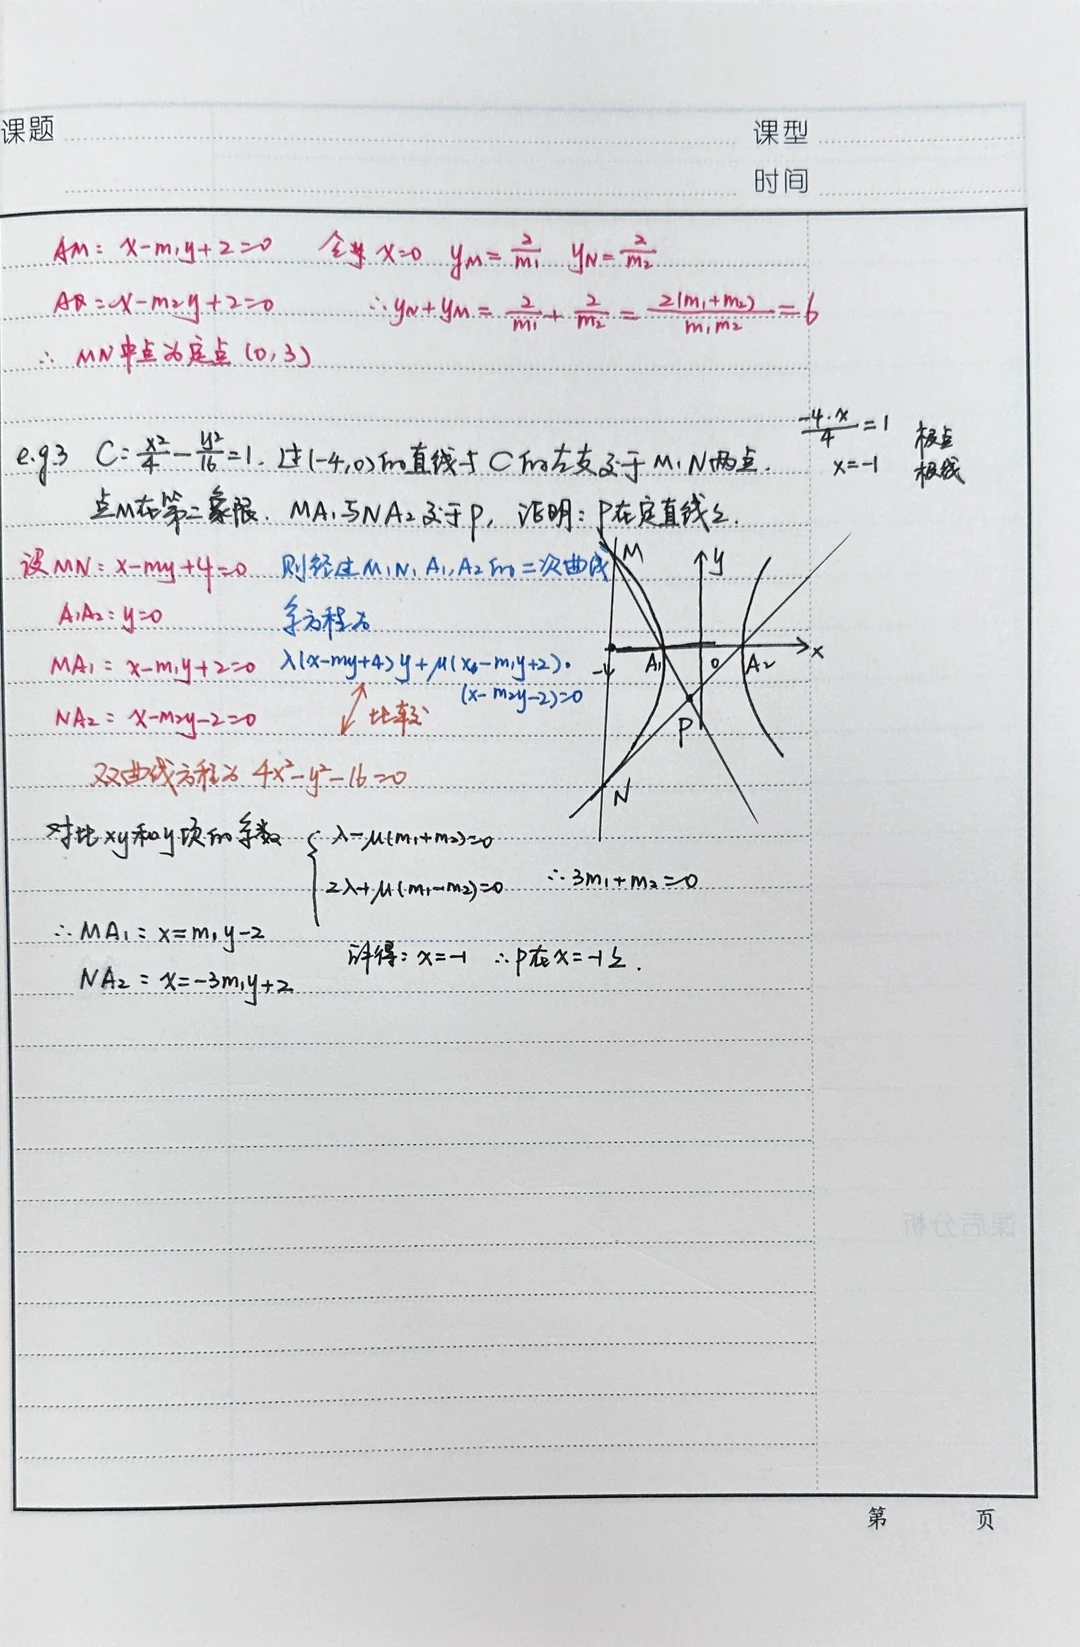 课题
课型
时间
AM: x-m₁y+2=0 令 x=0 y_M=2/m₁ y_N=2/m₂
x-m₂y+2=0 ∴y_N+y_M=2/m₁+2/m₂=2(m₁+m₂)/m₁m₂=6
∴ MN中点为定点(0,3)
-4·x/4=1
x=-1
极点
极线
e.g3 C=x²/4-y²/16=1. 过(-4,0)的直线与C的左支交于M,N两点.
点M在第二象限. MA₁与NA₂交于P, 证明: P在定直线上.
设MN: x-my+4=0 则经过M,N,A₁,A₂的二次曲线
A₁A₂: y=0 系方程为
MA₁: x-m₁y+2=0 λ(x-my+4)y+μ(x-m₁y+2)·
(x-m₂y-2)=0
NA₂: x-m₂y-2=0 比较
双曲线方程为 4x²-y²-16=0
M
y
x
-4
A₁
O
A₂
P
N
对比xy和y项的系数 { λ-μ(m₁+m₂)=0
2λ+μ(m₁-m₂)=0 ∴3m₁+m₂=0
∴MA₁: x=m₁y-2
解得: x=-1 ∴P在x=-1上.
NA₂: x=-3m₁y+2
课后分析
第 页